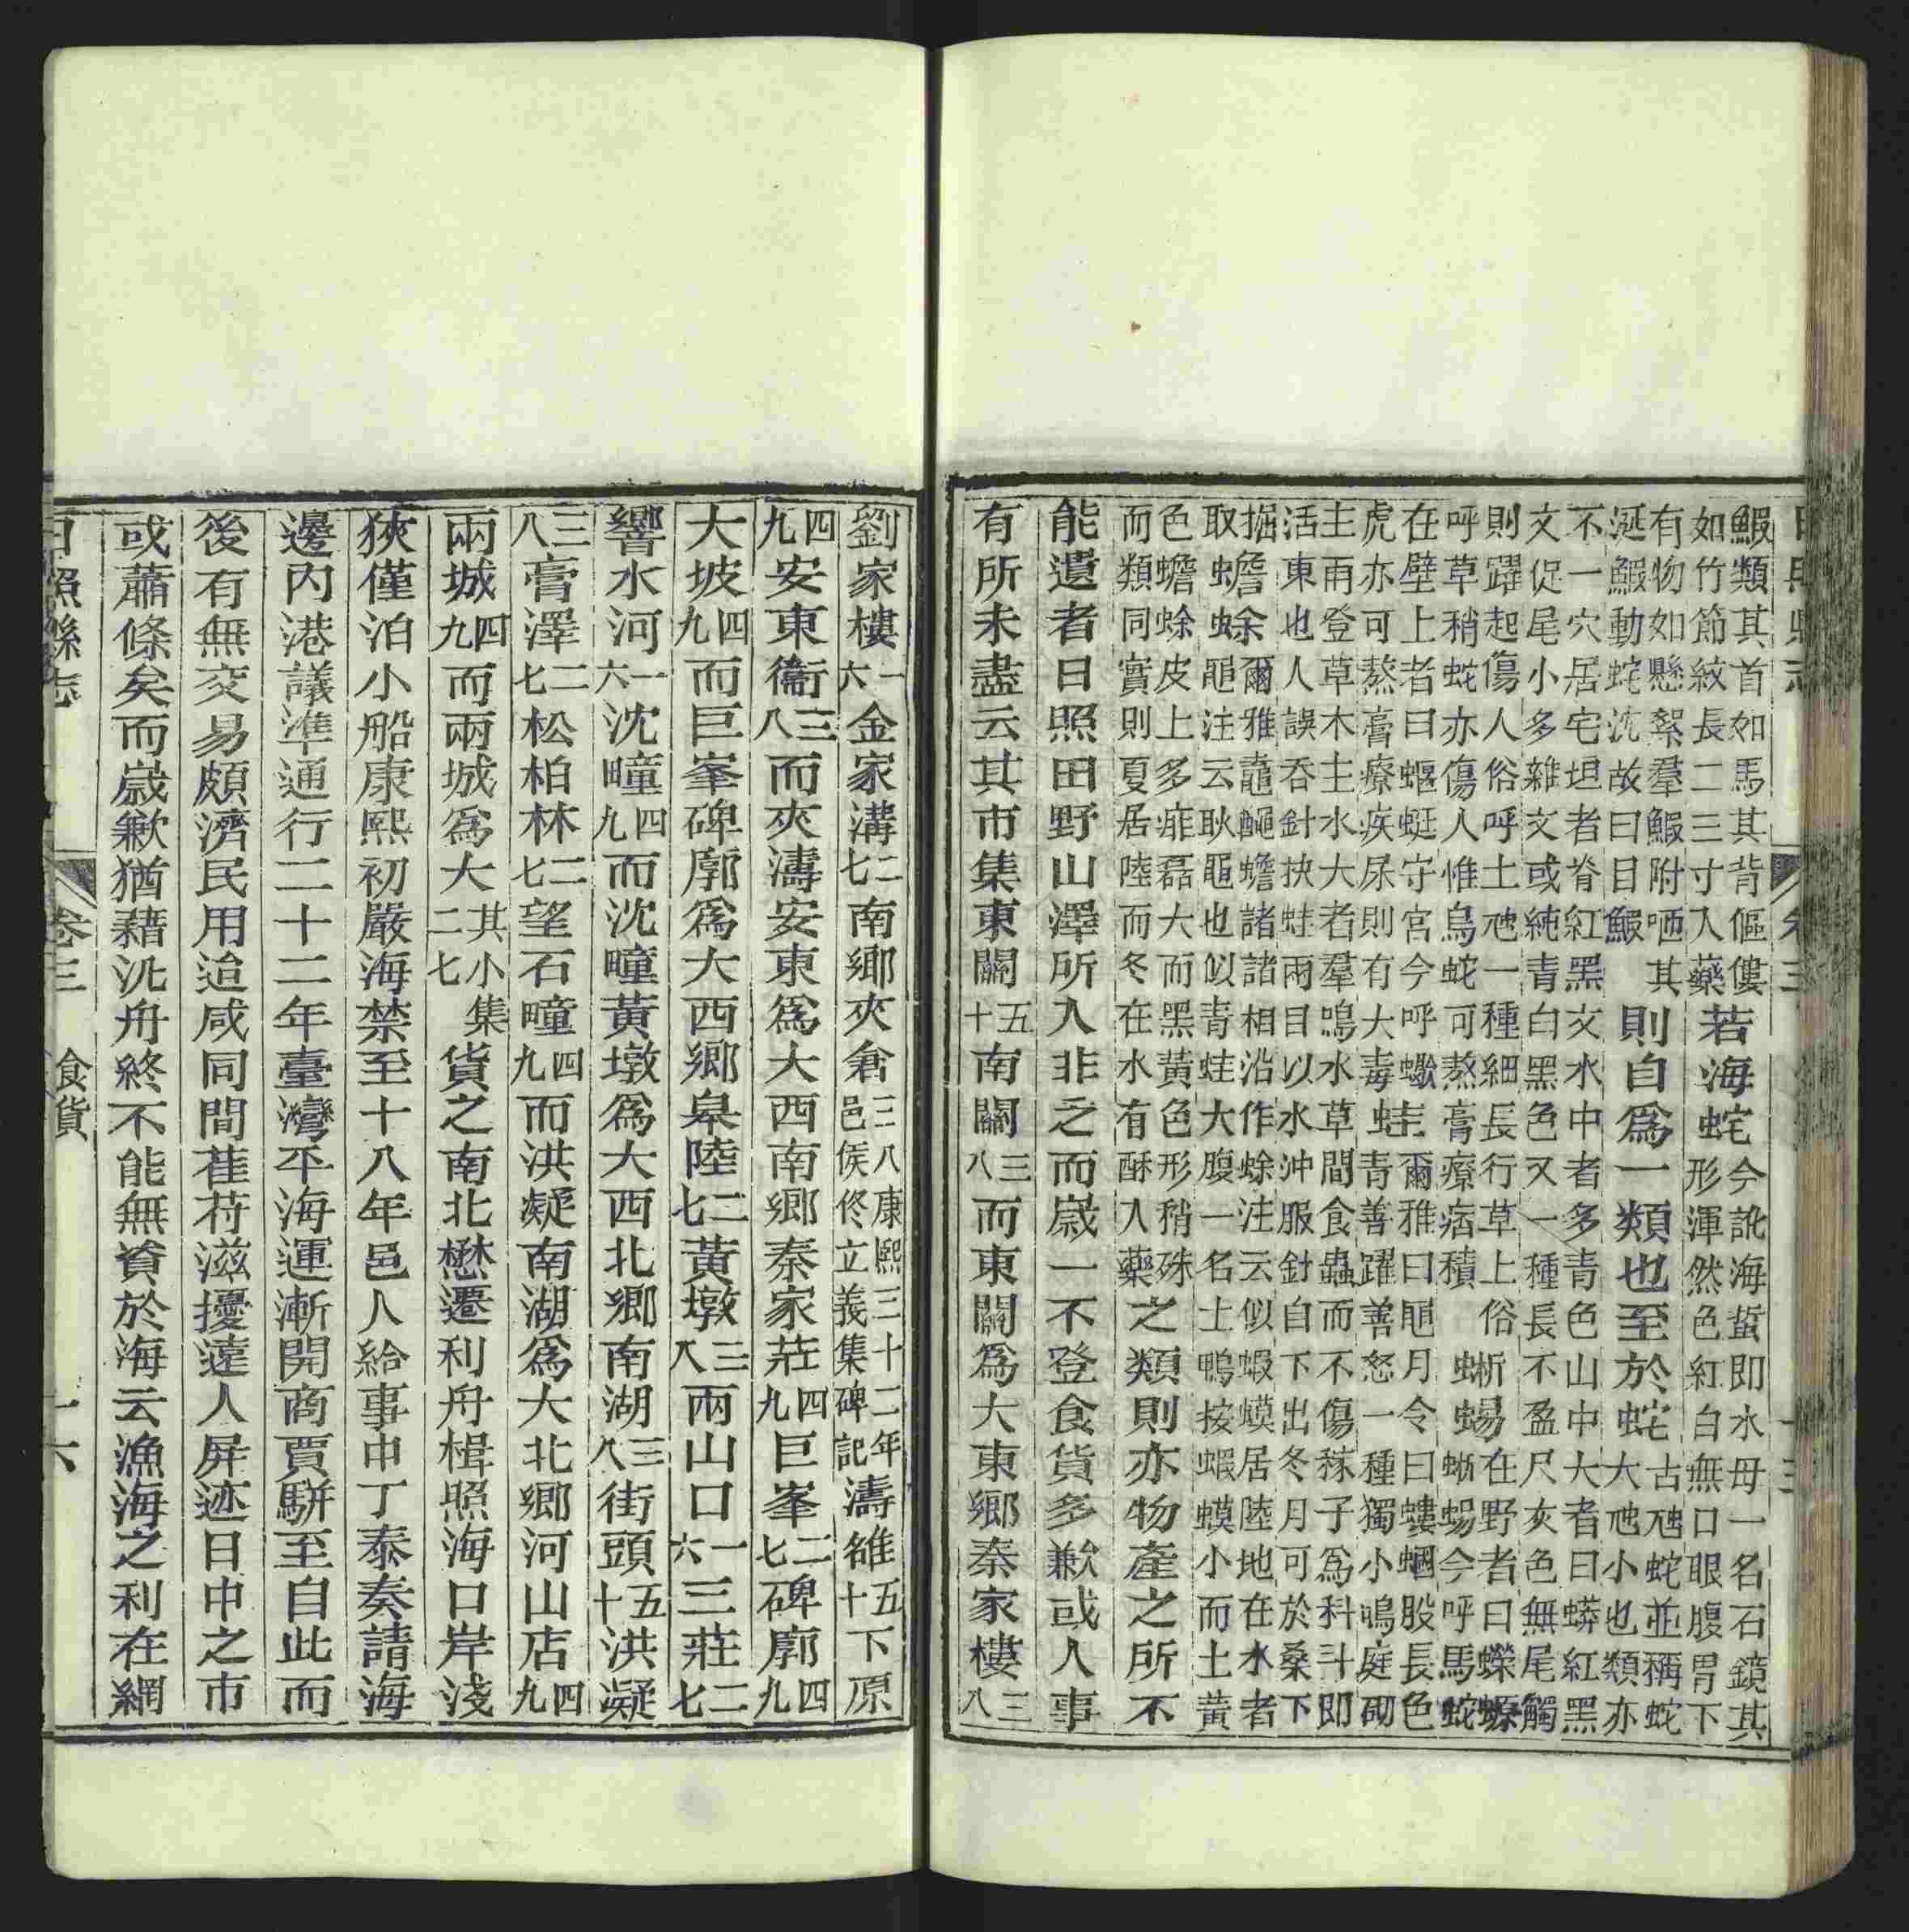 鰕類其首如馬其背傴僂
如竹節紋長二三寸入藥
若海蛇
今訛海蜇即水母一名石鏡其
形渾然色紅白無口眼腹胃下
有物如懸絮羣鰕附哂其
涎鰕動蛇沈故曰目鰕
則自爲一類也至於蛇
古虵蛇並稱蛇
大虵小也類亦
不一穴居宅垣者脊紅黑文水中者多青色山中大者曰蟒紅黑
文促尾小多雜文或純青白黑色又一種長不盈尺灰色無尾觸
則躍起傷人俗呼土虺一種細長行草上俗
呼草稍蛇亦傷人惟烏蛇可熬膏療痞積
蜥蜴
在野者曰蠑螈
蜥蜴今呼馬蛇
在壁上者曰蝘蜓守宮今呼蠍
虎亦可熬膏療疾尿則有大毒
蛙
爾雅曰黽月令曰螻蟈股長色
青善躍善怒一種獨小鳴庭砌
主雨登草木主水大者羣鳴水草間食蟲而不傷稼子爲科斗即
活東也人誤吞針抉蛙兩目以水沖服針自下出冬月可於桑下
掘
取
蟾蜍
爾雅鼀䵴蟾諸諸相沿作蜍注云似蝦蟆居陸地在水者
黽注云耿黽也似青蛙大腹一名土鴨按蝦蟆小而土黃
色蟾蜍皮上多痱磊大而黑黃色形稍殊
而類同實則夏居陸而冬在水有酥入藥
之類則亦物產之所不
能遺者日照田野山澤所入非乏而歲一不登食貨多歉或人事
有所未盡云其市集東關五十南關三八而東關爲大東鄉秦家樓三八
劉家樓一六金家溝二七南鄉夾倉三八康熙三十二年邑侯佟立義集碑記濤雒五十下原
四九安東衞三八而夾濤安東爲大西南鄉秦家莊四九巨峯二七碑廓四九
大坡四九而巨峯碑廓爲大西鄉皐陸二七黃墩三八兩山口一六三莊二七
響水河一六沈疃四九而沈疃黃墩爲大西北鄉南湖三八街頭五十洪凝
三八膏澤二七松柏林二七望石疃四九而洪凝南湖爲大北鄉河山店四九
兩城四九而兩城爲大其小集二七貨之南北懋遷利舟楫照海口岸淺
狹僅泊小船康熙初嚴海禁至十八年邑人給事中丁泰奏請海
邊內港議準通行二十二年臺灣平海運漸開商賈駢至自此而
後有無交易頗濟民用迨咸同間萑苻滋擾遠人屏迹日中之市
或蕭條矣而歲歉猶藉汎舟終不能無資於海云漁海之利在網
日照縣志　卷三　食貨　十六